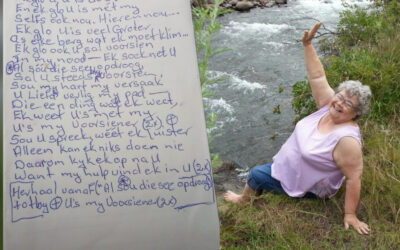 En ek glo U is met my
Selfs ook nou. Hier en nou...
Ek glo U is veel Groter,
As elke berg wat ek moet klim...
Ek glo ook U sal voorsien
In my nood — Ek soek net U
Al sou die see opdroog
Sal U steeds voorsien.
Sou my hart my versaak
U Liefd
Die een ding wat ek weet,
Ek weet U's met my
U's my Voorsiener (2x)
Sou U spreek, weet ek luister
Alleen kan ek niks doen nie
Daarom kyk ek op na U
Want my hulp vind ek in U (2x)
Herhaal vanaf "Al sou die see opdroog"
tot by U's my Voorsiener (2x)